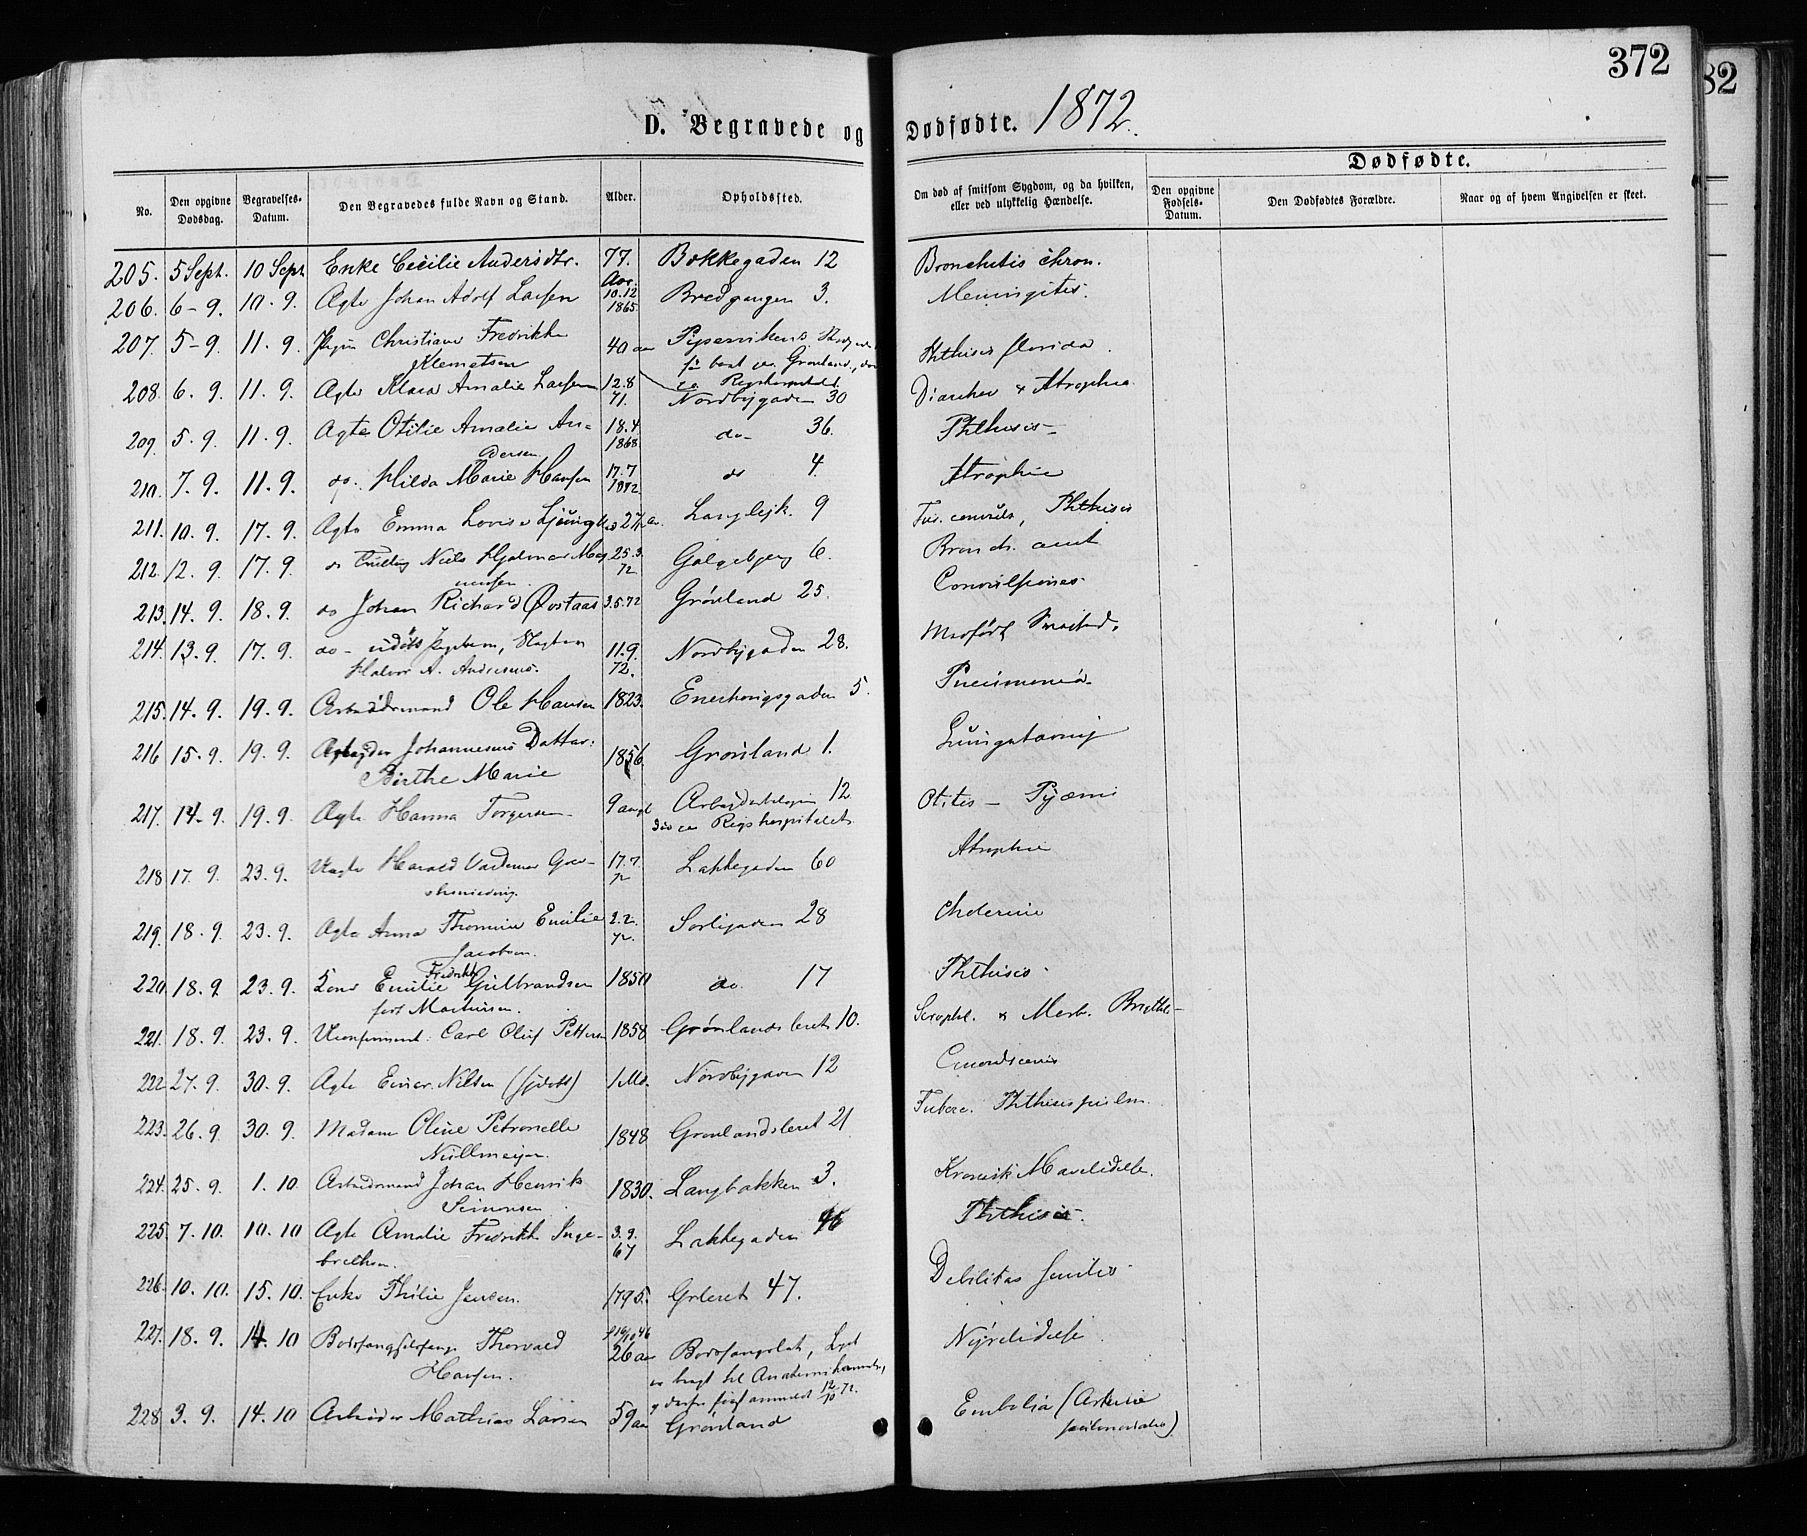 372
82
D. Begravede og Dødfødte. 1872.
Dødfødte.
No.
Den opgivne Dødsdag.
Begravelses-Datum.
Den Begravedes fulde Navn og Stand.
Alder.
Opholdssted.
Om død af smitsom Sygdom, og da hvilken, eller ved ulykkelig Hændelse.
Den opgivne Fødsels-Datum.
Den Dødfødtes Forældre.
Naar og af hvem Angivelsen er skeet.
205. 5 Sept. 10 Sept. Enke Cecilie Andersdtr. 77. Aar. Bakkegaden 12 Bronchitis chron.
206. 6-9. 10.9. Ægte Johan Adolf Larsen 10.12 1865. Bredgangen 3. Meningitis.
207. 5-9. 11.9. Pigen Christiane Fredrikke 40 aar Pipervikens Phthisis florida
Klemetsen Grønland,
Rigshospitalet
208. 6.9. 11.9. Ægte Klara Amalie Larsen 12.8 71. Nordbygaden 30 Diarrhee & Atrophia
209. 5.9. 11.9. Ægte Otilie Amalie An- 18.4 1868. do- 36. Phthisis-
dersen
210. 7.9. 11.9. do. Hilda Marie Hansen 17.7 1872. do 4 Atrophie
211. 10.9. 17.9. Ægte Emma Lovise 27 a. Langlejk. 9 Phthisis
212. 12.9. 17.9. do Niels Hjalmar Mag- 25.3. 72 Galgebjerg 6. Bronch. acut
nussen.
213. 14.9. 18.9. do Johan Richard Østaas 3.5.72 Grønland 25. Convulsiones
214. 13.9. 17.9. do- udøbt Pigebarn, 11.9. 72. Nordbygaden 28. Medfødt Svaghed.
Halvor A. Andersens.
215. 14.9. 19.9. Arbeidsmand Ole Hansen 1823. Enerhougsgaden 5. Pneumonia
216 15.9. 19.9. Arbeider Johannesens Datter: 1856. Grønland 1. Lungetæring
Birthe Marie
217. 14.9. 19.9. Ægte Hanna Torgersen 9 aar 12 Otites - Pyæmi
Rigshospitalet
218 17.9. 23.9. Uægte Harald Valdemar 17.7. 72 Lakkegaden 60 Atrophie
219. 18.9. 23.9. Ægte Anna Thomine Emilie 2.2. 72. Sorligaden 28 Cholerine
Jacobsen.
220. 18.9. 23.9. Kone Emilie Fredrikke Gulbrandsen 1850 do. 17 Phthisis-
født Mathisen.
221. 18.9. 23.9. Ukonfirmeret: Carl Oluf Pettersen 1858 Grønlandsleret 10. Scrophl. & Morb. Brightii-
222. 27.9. 30.9. Ægte Einar Nilsen (hjdøbt) 1 Md. Nordbygaden 12
223. 26.9. 30.9. Madam Oline Petronelle 1848 Grønlandsleret 21 Tuberc. Phthisis pulm.
Nullmeyer.
224. 25.9. 1.10. Arbeidsmand Johan Henrik 1830. Langbakken 3. Kronisk Mavelidelse.
Simonsen.
225. 7.10. 10.10 Ægte Amalie Fredrikke Inge- 3.9. 67 Lakkegaden Phthisis.
bretsen.
226. 10.10. 15.10. Enke Thilie Jensen. 1795. Grleret 47. Debilitas senilis.
227. 18.9. 14.10 Bodsfængselsfange Thorvald f 19/10 46 26 aar Bodsfængslet, Liget Nyrelidelse.
Hansen. er bragt til Anatomikammeret,
og derfra først anmeldt 12/10 72.
228. 3.9. 14.10 Arbeider Mathias Larsen 59 aar Grønland Embolia (Arteriæ
pulmonalis)